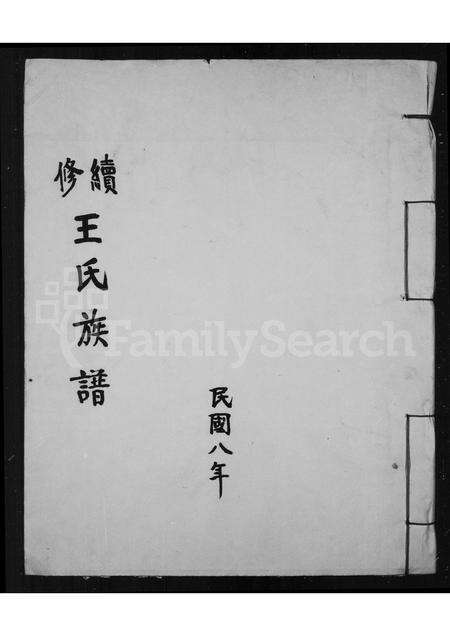 續修
王氏族譜
民國八年
FamilySearch